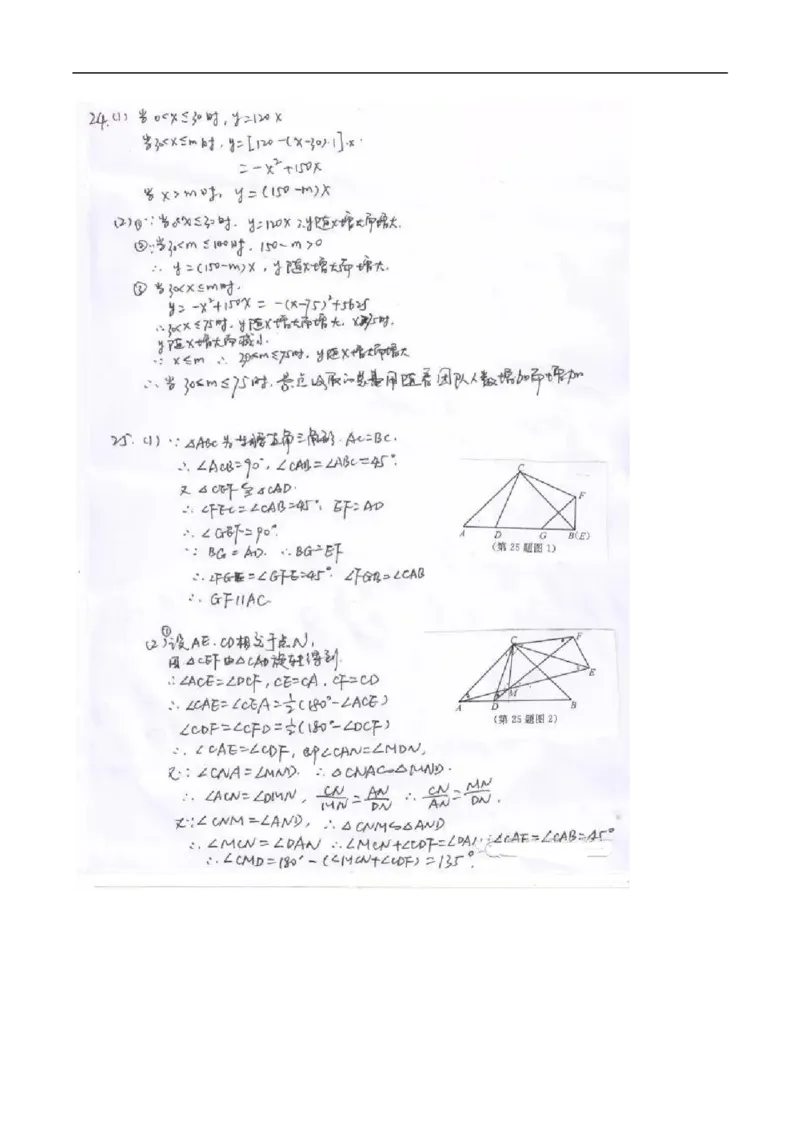 24.(1) 当0<x≤30时, y=120x
当30<x≤m时, y=[120-(x-30)·1]·x
=-x²+150x
当x>m时, y=(150-m)x
(2)①∵当0<x≤30时, y=120x ∴y随x增大而增大.
②∵当30<m≤100时, 150-m>0
∴ y=(150-m)x, y随x增大而增大.
③ 当30<x≤m时,
y=-x²+150x=-(x-75)²+5625
∴30<x≤75时, y随x增大而增大, x>75时,
y随x增大而减小.
∵ x≤m ∴ 30<m≤75时, y随x增大而增大
∴当30<m≤75时, 景点收取的总费用随着团队人数增加而增加
25.(1) ∵△ABC为等腰直角三角形, AC=BC.
∴∠ACB=90°, ∠CAB=∠ABC=45°.
又△CEF≌△CAD.
∴∠FEC=∠CAB=45°, EF=AD
∴∠GEF=90°.
∵ BG=AD, ∴BG=EF
∴∠FGE=∠GFE=45°, ∠FGB=∠CAB
∴ GF∥AC.
C
F
A D G B(E)
(第25题图1)
(2)①设AE、CD相交于点N,
因△CEF由△CAD旋转得到.
∴∠ACE=∠DCF, CE=CA, CF=CD
∴∠CAE=∠CEA=½(180°-∠ACE)
∠CDF=∠CFD=½(180°-∠DCF)
∴∠CAE=∠CDF, 即∠CAN=∠MDN,
又∵∠CNA=∠MND. ∴△CNA∽△MND.
∴∠ACN=∠DMN, CN/MN=AN/DN ∴CN/AN=MN/DN.
又∵∠CNM=∠AND, ∴△CNM∽△AND
∴∠MCN=∠DAN ∴∠MCN+∠CDF=∠DAN+∠CAE=∠CAB=45°
∴∠CMD=180°-(∠MCN+∠CDF)=135°.
C
F
E
M
A D B
(第25题图2)